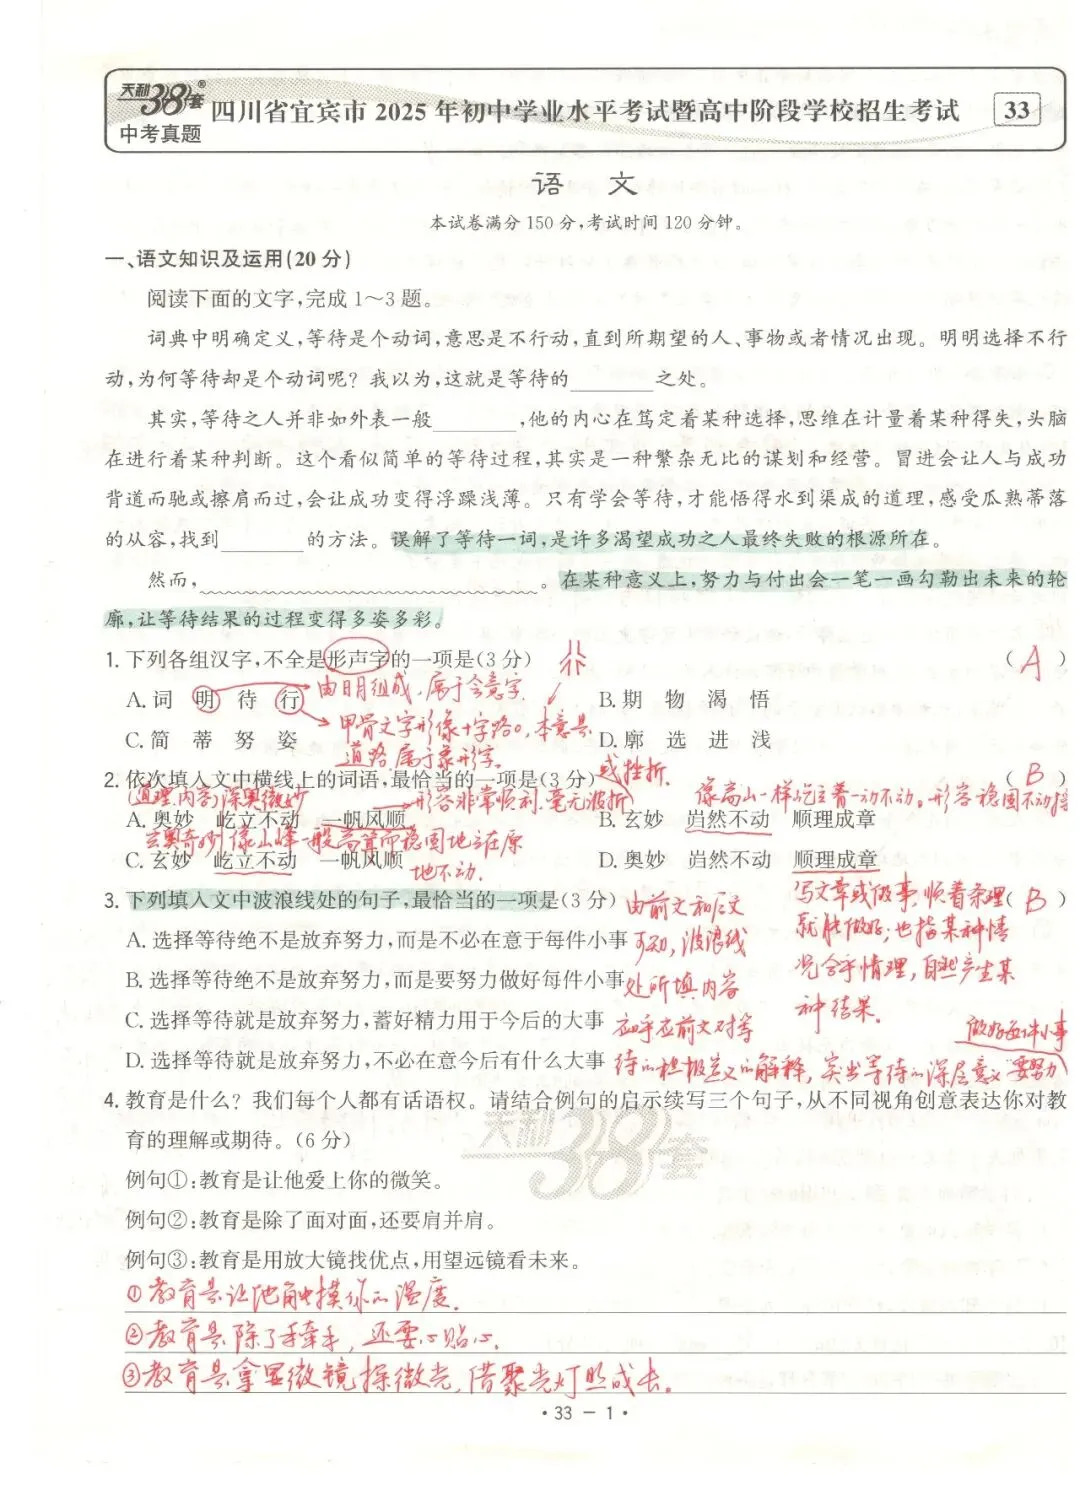 天利38套®
中考真题
四川省宜宾市 2025 年初中学业水平考试暨高中阶段学校招生考试
33
语 文
本试卷满分 150 分,考试时间 120 分钟。
一、语文知识及运用(20 分)
阅读下面的文字,完成 1～3 题。
词典中明确定义,等待是个动词,意思是不行动,直到所期望的人、事物或者情况出现。明明选择不行
动,为何等待却是个动词呢？我以为,这就是等待的______之处。
其实,等待之人并非如外表一般______,他的内心在笃定着某种选择,思维在计量着某种得失,头脑
在进行着某种判断。这个看似简单的等待过程,其实是一种繁杂无比的谋划和经营。冒进会让人与成功
背道而驰或擦肩而过,会让成功变得浮躁浅薄。只有学会等待,才能悟得水到渠成的道理,感受瓜熟蒂落
的从容,找到______的方法。误解了等待一词,是许多渴望成功之人最终失败的根源所在。
然而,______。在某种意义上,努力与付出会一笔一画勾勒出未来的轮
廓,让等待结果的过程变得多姿多彩。
1. 下列各组汉字,不全是形声字的一项是(3 分) ( A )
A. 词 明 待 行 由日月组成,属于会意字.
B. 期 物 渴 悟
甲骨文字形像十字路。本意是
C. 简 蒂 努 姿
道路.属于象形字.
D. 廓 选 进 浅
2. 依次填入文中横线上的词语,最恰当的一项是(3 分) ( B )
或挫折.
(道理.内容)深奥微妙
形容非常顺利.毫无波折
像高山一样屹立着一动不动。形容稳固不动摇
A. 奥妙 屹立不动 一帆风顺
B. 玄妙 岿然不动 顺理成章
玄奥奇妙 像山峰一般高耸而稳固地立在原
地不动.
C. 玄妙 屹立不动 一帆风顺
D. 奥妙 岿然不动 顺理成章
写文章或做事顺着条理
就能做好;也指某种情
况合乎情理,自然产生某
种结果.
3. 下列填入文中波浪线处的句子,最恰当的一项是(3 分) ( B )
由前文和后文
可知,波浪线
处所填内容
应呼应前文对等
待的积极意义的解释,突出等待的深层意义"要努力
做好每件小事
A. 选择等待绝不是放弃努力,而是不必在意于每件小事
B. 选择等待绝不是放弃努力,而是要努力做好每件小事
C. 选择等待就是放弃努力,蓄好精力用于今后的大事
D. 选择等待就是放弃努力,不必在意今后有什么大事
4. 教育是什么？我们每个人都有话语权。请结合例句的启示续写三个句子,从不同视角创意表达你对教
育的理解或期待。(6 分)
天利38套
例句①:教育是让他爱上你的微笑。
例句②:教育是除了面对面,还要肩并肩。
例句③:教育是用放大镜找优点,用望远镜看未来。
①教育是让他触摸你的温度.
②教育是除了手牵手,还要心贴心.
③教育是拿显微镜探微光,借聚光灯照成长.
· 33 － 1 ·